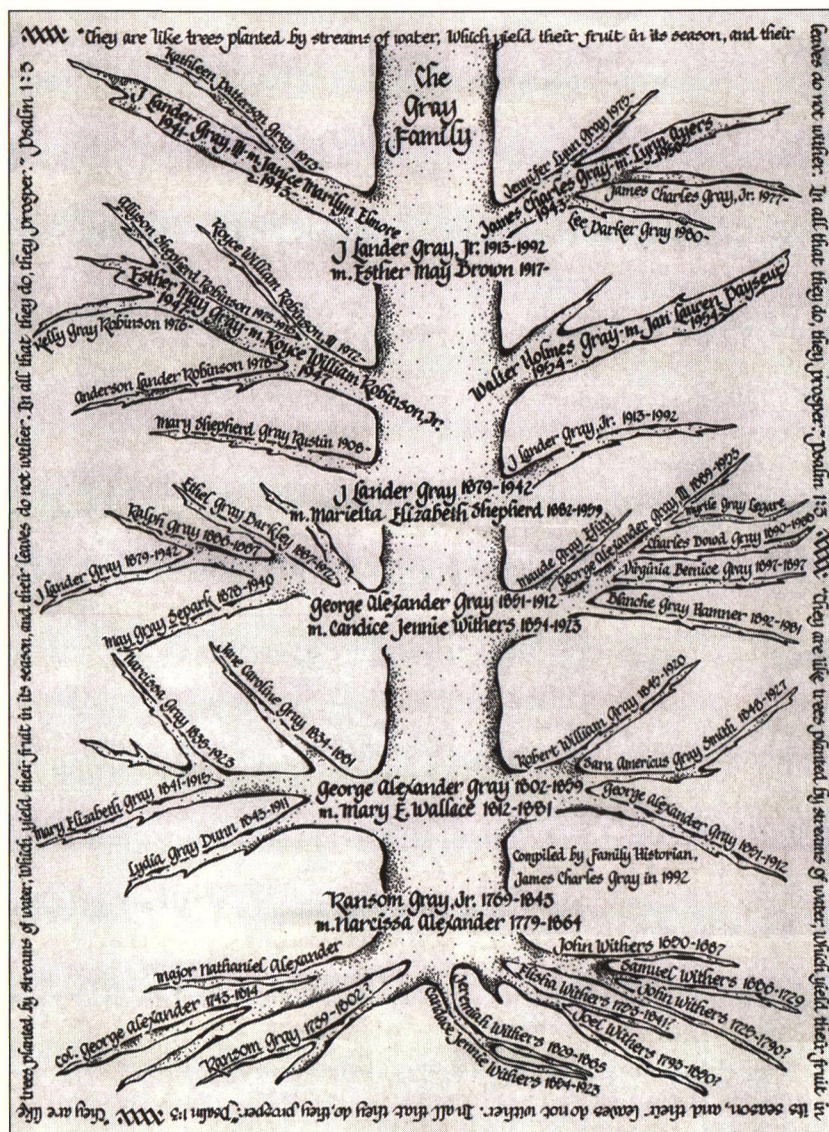 "They are like trees planted by streams of water, Which yield their fruit in its season, and their
leaves do not wither. In all that they do they prosper." Psalm 1:3
"They are like trees planted by streams of water, Which yield their fruit in
its season, and their leaves do not wither. In all that they do, they prosper." Psalm 1:3
"They are like
trees planted by streams of water, Which yield their fruit in its season, and their leaves do not wither. In all that they do they prosper." Psalm 1:3
The
Gray
Family
Kathleen Patterson Gray 1975-
J Lander Gray III m. Janice Marilyn Elmore
1941- 1943-
Jennifer Lynn Gray 1975-
James Charles Gray m. Lynn Ayers
1943-
James Charles Gray, Jr. 1977-
Lee Parker Gray 1980-
J Lander Gray, Jr. 1913-1992
m. Esther May Brown 1917-
Allyson Shepherd Robinson 1975-1975
Royce William Robinson, III 1972-
Esther May Gray m. Royce William Robinson, Jr.
1947- 1947
Kelly Gray Robinson 1976-
Anderson Lander Robinson 1976-
Walter Holmes Gray m. Jan Lauren Payseur
1954- 1954-
Mary Shepherd Gray Rustin 1908-
J Lander Gray, Jr. 1913-1992
J Lander Gray 1879-1942
m. Marietta Elizabeth Shepherd 1882-1959
Ethel Gray Barkley 1887-1972
Ralph Gray 1886-1887
J Lander Gray 1879-1942
May Gray Separk 1878-1940
Maude Gray Efird
George Alexander Gray III 1889-1953
Myrtle Gray Legare
Charles Dowd Gray 1890-1980
Virginia Bernice Gray 1897-1897
Blanche Gray Hamner 1892-1981
George Alexander Gray 1851-1912
m. Candice Jennie Withers 1854-1923
Narcissa Gray 1838-1923
Jane Caroline Gray 1834-1881
Mary Elizabeth Gray 1841-1915
Lydia Gray Dunn 1843-1911
Robert William Gray 1845-1920
Sara Americus Gray Smith 1848-1927
George Alexander Gray 1851-1912
George Alexander Gray 1802-1859
m. Mary E. Wallace 1812-1881
Compiled by Family Historian,
James Charles Gray in 1992
Ransom Gray, Jr. 1769-1845
m. Narcissa Alexander 1779-1864
Major Nathaniel Alexander
Col. George Alexander 1743-1814
Ransom Gray 1739-1802?
Jeremiah Withers 1829-1865
Candice Jennie Withers 1854-1923
John Withers 1660-1687
Samuel Withers 1686-1729
John Withers 1728-1790?
Elisha Withers 1756-1841?
Joel Withers 1793-1850?